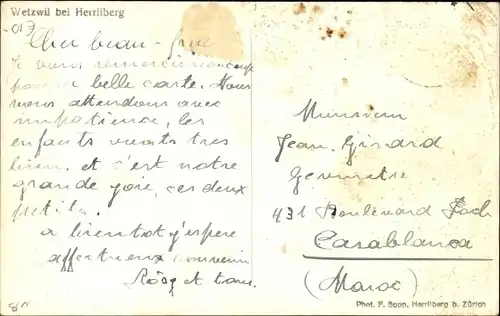 Wetzwil bei Herrliberg
Cher beau-frère
Je vous remercie beaucoup
pour la belle carte. Nous
vous attendons avec
impatience, les
enfants vont très
bien, et c'est notre
grande joie, ces deux
petits.
a bientot j'espère
affectueux souvenir
et tous.
Monsieur
Jean Girard
Geometre
431 Boulevard Foch
Casablanca
(Maroc)
Phot. F. Bopp, Herrliberg b. Zürich